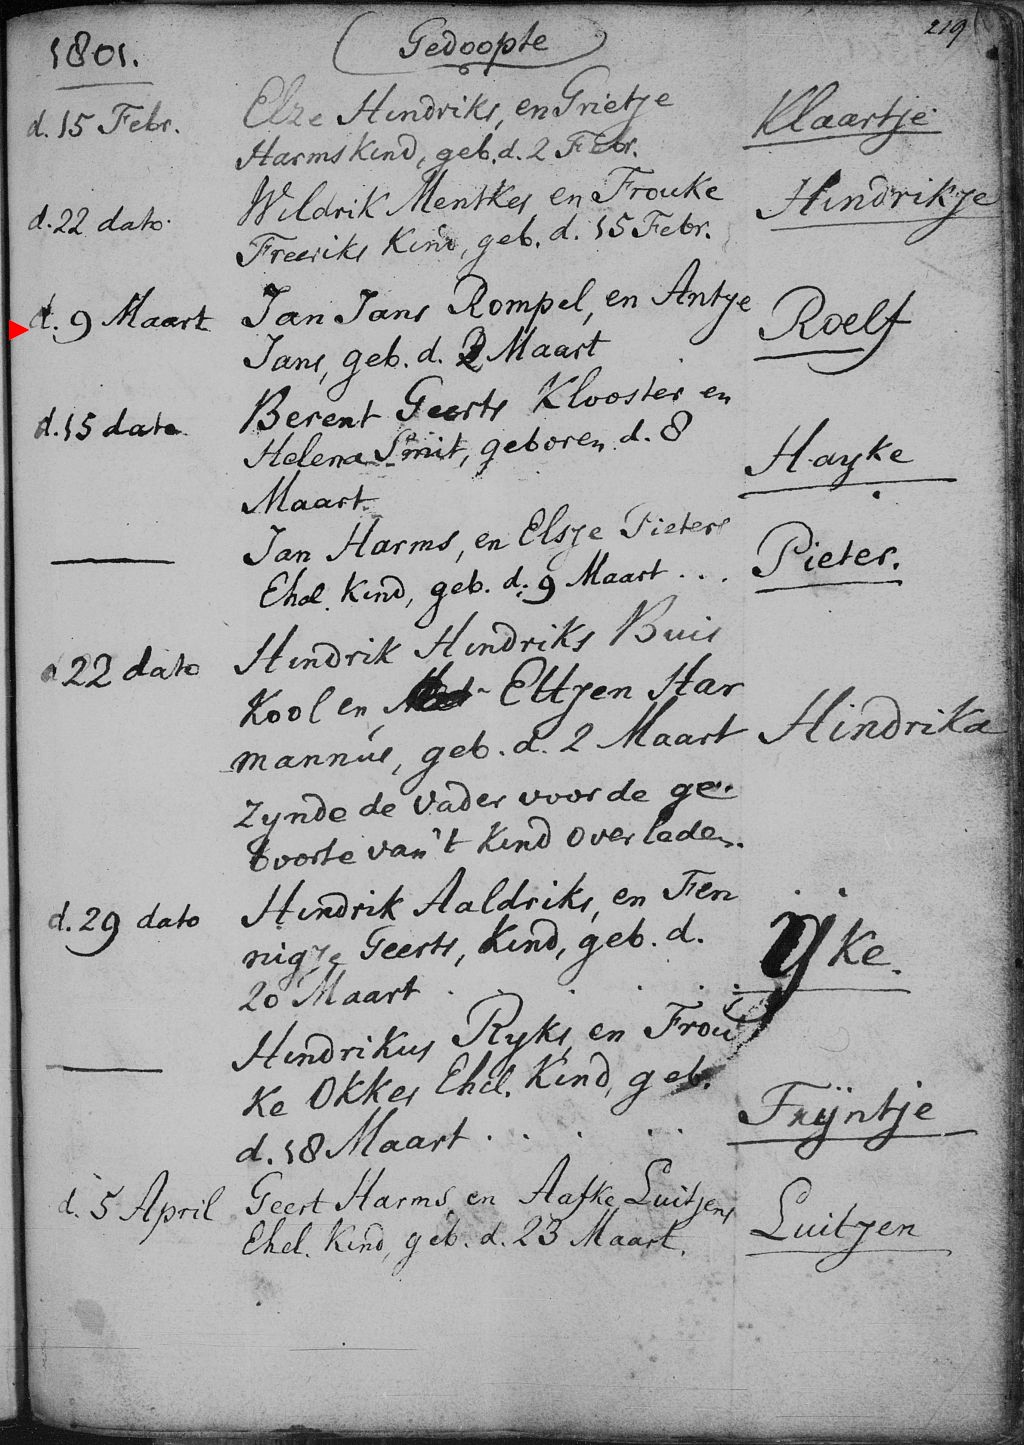 219
1801. Gedoopte
d. 15 Febr. Elze Hindriks, en Grietje Klaartje
Harms Kind, geb. d. 2 Febr.
d. 22 dato. Wildrik Mentkes en Frouke Hindrikje
Freeriks Kind, geb. d. 15 Febr.
d. 9 Maart Jan Jans Rompel, en Antje Roelf
Jans, geb. d. 2 Maart
d. 15 dato Berent Geerts Klooster en
Helena Smit, geboren d. 8 Hayke
Maart.
Jan Harms, en Elsje Pieters Pieter.
Ehel. Kind, geb. d. 9 Maart . . .
22 dato Hindrik Hindriks Buis
Kool en Ettjen Har
mannus, geb. d. 2 Maart Hindrika
zynde de vader voor de ge-
boorte van't Kind overleden.
d. 29 dato Hindrik Aaldriks, en Fen
nigje Geerts, Kind, geb. d. ÿke.
20 Maart . . . . .
Hindrikus Ryks, en Frou
ke Okkes Ehel. Kind, geb. Frÿntje
d. 18 Maart . . . . .
d. 5 April Geert Harms, en Aafke Luitjens Luitjen
Ehel. Kind, geb. d. 23 Maart.